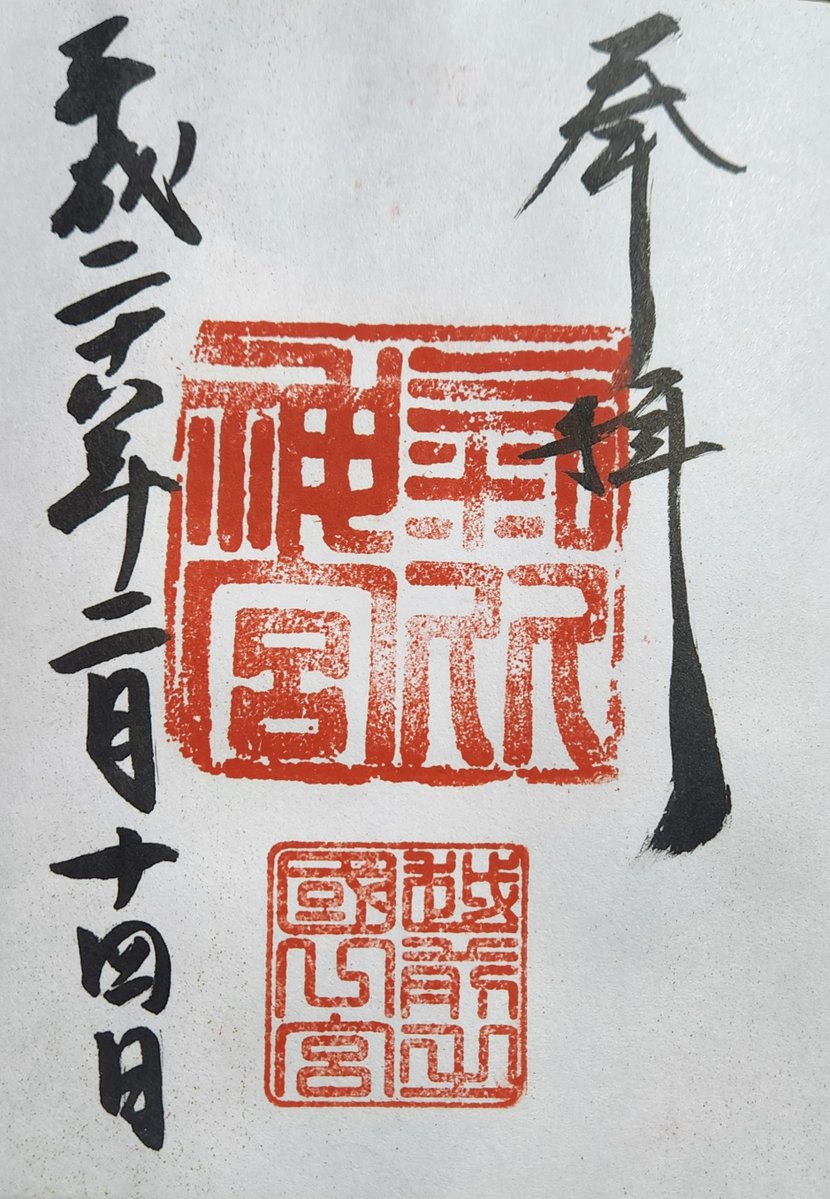 奉拝
氣比
神宮
越前之
國一宮
平成二十八年二月十四日